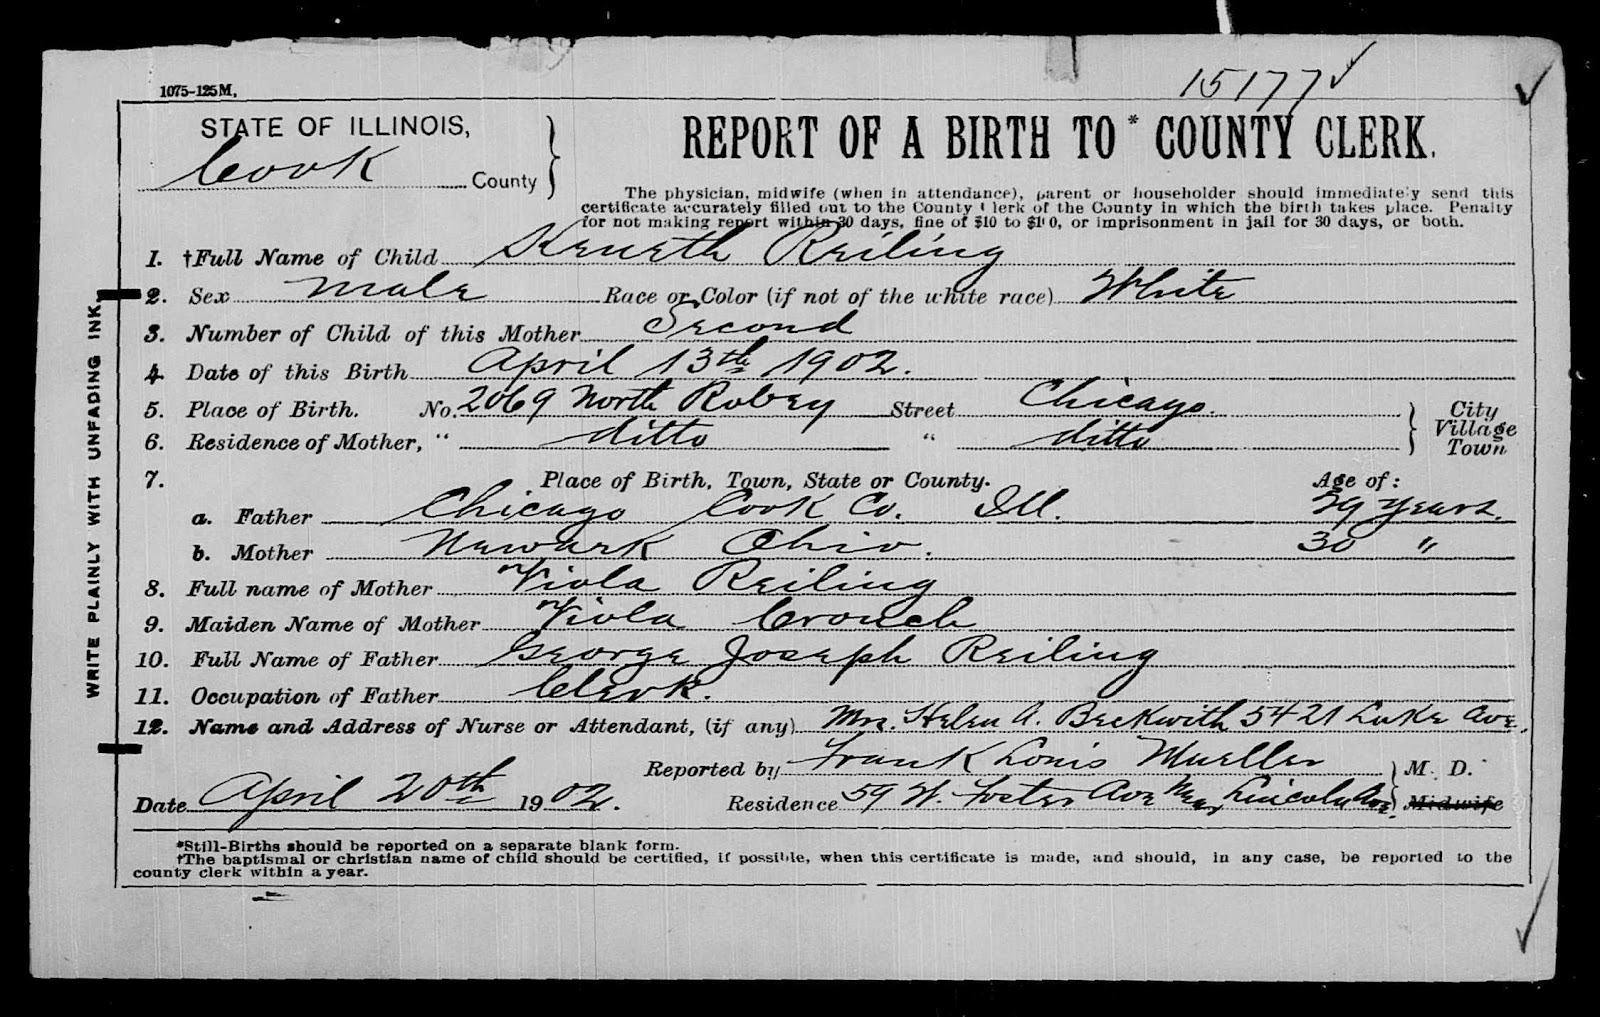 15177
1075-125M,
STATE OF ILLINOIS,
Cook County
REPORT OF A BIRTH TO * COUNTY CLERK.
The physician, midwife (when in attendance), parent or householder should immediately send this
certificate accurately filled out to the County Clerk of the County in which the birth takes place. Penalty
for not making report within 30 days, fine of $10 to $100, or imprisonment in jail for 30 days, or both.
1. †Full Name of Child Keneth Reiling
2. Sex Male Race or Color (if not of the white race) White
3. Number of Child of this Mother Second
4 Date of this Birth April 13th 1902.
5. Place of Birth. No. 2069 North Robey Street Chicago. City
Village
6. Residence of Mother, " ditto " ditto Town
7. Place of Birth, Town, State or County. Age of:
a. Father Chicago Cook Co. Ill. 29 years.
b. Mother Newark Ohio. 30 "
8. Full name of Mother Viola Reiling
9. Maiden Name of Mother Viola Crouch
10. Full Name of Father George Joseph Reiling
11. Occupation of Father Clerk.
12. Name and Address of Nurse or Attendant, (if any) Mrs. Helen A. Beckwith 5421 Luke Ave.
Reported by Frank Louis Mueller M. D.
Date April 20th 1902. Residence 59 W. Foster Ave near Lincoln Ave. Midwife
*Still-Births should be reported on a separate blank form.
†The baptismal or christian name of child should be certified, if possible, when this certificate is made, and should, in any case, be reported to the
county clerk within a year.
WRITE PLAINLY WITH UNFADING INK.